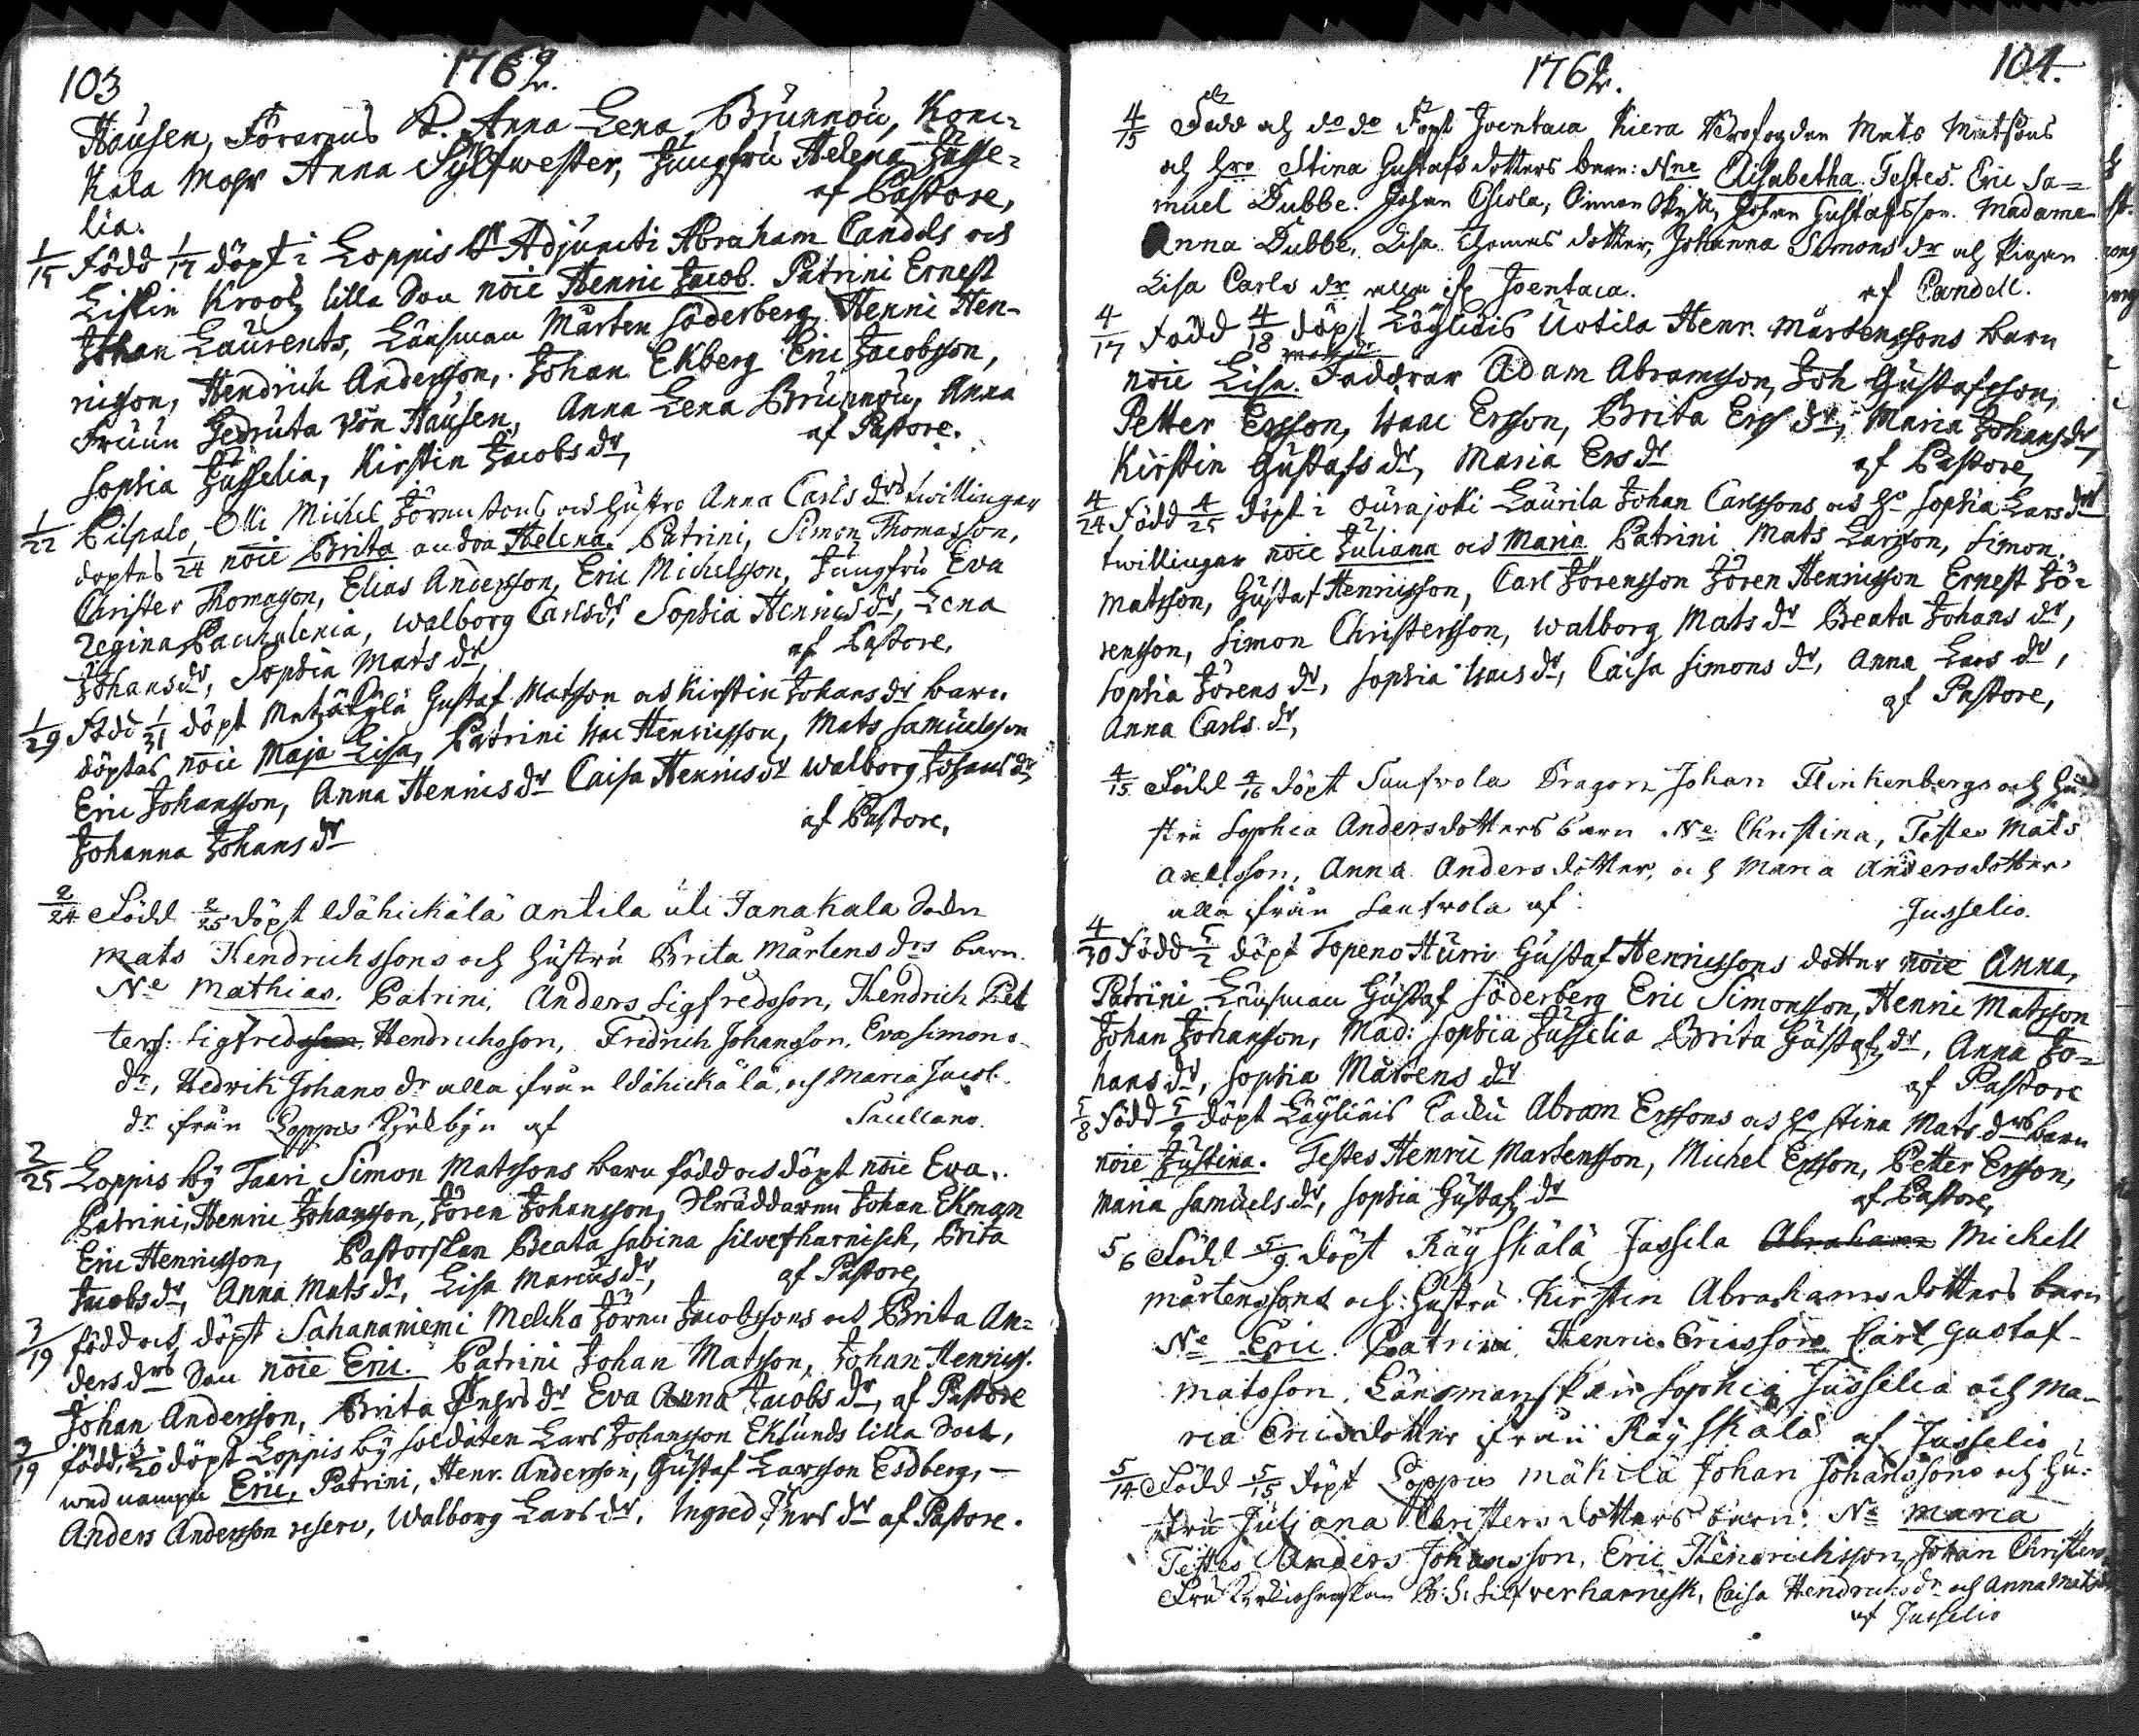 103
1762.
Hausen, Förarens Anna Lena Brunnou, Koni-
Kala Mopr Anna Sylfwester, Jungfru Helena Jusse-
lia. af Pastore,
1/15 Född 1/17 döpt i Loppis Adjuncti Abraham Candels och
Lislin Krook lilla Son noie Henric Jacob. Patrini Ernest
Johan Laurents, Länsman Mårten Söderberg, Henric Hen-
ricsson, Hendrich Andersson, Johan Ekberg Eric Jacobsson,
Fruun Gedruta Von Hausen, Anna Lena Brunnou, Anna
Sophia Jusselia, Kirstin Jacobs dr, af Pastore.
1/22 Pilpala, Olli Michel Jörenssons och Hustro Anna Carls drs twillingar
doptes 1/24 noie Brita andra Helena. Patrini, Simon Thomasson,
Christer Thomasson, Elias Andersson, Eric Michelsson, Jungfru Eva
Regina Pachalenia, Walborg Carlsdr, Sophia Henrics dr, Lena
Johansdr, Sophia Mats dr, af Pastore,
1/29 Född 1/31 döpt Gustaf Matsson och Kirstin Johans dr barn
döptes noie Maja Lisa, Patrini Isac Henricsson, Mats Samuelsson
Eric Johansson, Anna Henrics dr Caisa Henrics dr Walborg Johans dr
Johanna Johans dr af Pastore,
2/24 Född 2/25 döpt Wähickälä Antila uti Janakala
Mats Hendrichssons och Hustru Brita Mårtens drs barn.
Ne Mathias. Patrini, Anders Sigfredsson, Hendrich Pet
ters: Sigfred Hendrichsson, Fredrich Johansson, Eva Simons
dr, Hedwik Johans dr alla ifrån Wähickälä, och Maria Jacobs
dr ifrån Loppis Kyrkbyn af Sacellano.
2/25 Loppis by Taari Simon Matssons barn född och döpt noie Eva.
Patrini, Henric Johansson, Jören Johansson, Skräddaren Johan Ekman
Eric Henricsson, Pastorskan Beata Sabina Silverharnisch, Brita
Jacobs dr, Anna Mats dr, Lisa Marcus dr, af Pastore,
3/19 född och döpt Sahananiemi Melcko Jören Jacobssons och Brita An-
ders drs Son noie Eric. Patrini Johan Matsson, Johan Henricss.
Johan Andersson, Brita dr Eva Anna Jacobs dr, af Pastore
3/19 född, 3/20 döpt Loppis by soldaten Lars Johansson Eklunds lilla Son,
wed nampn Eric, Patrini, Henr. Andersson, Gustaf Larsson Esdberg,
Anders Andersson reserv, Walborg Lars dr, Ingred dr af Pastore.
1762.
104.
4/15 Född och do do Döpt Joentaca Kiera Mats Matsons
och Hro Stina Gustafs dotters barn: Nne Elisabetha. Testes. Eric Sa=
muel Dubbe. Johan Johan Gustafsson. Madame
Anna Dubbe, Lisa Thomas dotter, Johanna Simons dr och Pigan
Lisa Carls dr alla if Joentaca. af Candell.
4/17 Född 4/18 döpt Löyliäis Uotila Henr. Mårtenssons barn
noie Lisa. Faddrar Adam Abramsson, Joh Gustafsson,
Petter Ersson, Isaac Ersson, Brita Ers dr, Maria Johans dr,
Kirstin Gustafs dr, Maria Ers dr af Pastore,
4/24 Född 4/25 döpt i Ourajoki Laurila Johan Carlssons och Ho Sophia Lars drs
twillingar noie Juliana och Maria Patrini Mats Larsson, Simon
Matsson, Gustaf Henricsson, Carl Jörensson Jören Henricsson Ernest Jö-
rensson, Simon Christersson, Walborg Mats dr Beata Johans dr,
Sophia Jörens dr, Sophia Isacs dr, Caisa Simons dr, Anna Lars dr,
Anna Carls dr, af Pastore,
4/15 Född 4/16 döpt Saufvola Dragon Johan Flinkenbergs och Hu
stru Sophia Andersdotters barn Ne Christina, Testes Mats
Axelsson, Anna Andersdotter, och Maria Andersdotter
alla ifrån Saufvola af Jusselio.
4/30 Född 5/2 döpt Topeno Hurri Gustaf Henricssons dotter noie Anna,
Patrini Länsman Gustaf Söderberg Eric Simonsson, Henric Matsson
Johan Johansson, Mad: Sophia Jusselia Brita Gustafs dr, Anna Jo-
hans dr, Sophia Mårtens dr af Pastore
5/8 Född 5/9 döpt Löyliäis Abram Erssons och Ho Stina Mats drs barn
noie Justina. Testes Henric Martensson, Michel Ersson, Petter Ersson,
Maria Samuels dr, Sophia Gustafs dr af Pastore,
5/6 Född 5/9 döpt Räyskälä Jussila Abrahams Michell
Mårtenssons och Hustru Kirstin Abrahamsdotters barn
Ne Eric Patrini Henric Ericsson Carl Gustaf
Matsson, Länsmanskan Sophia Jusselia och Ma-
ria Ericsdotter ifrån Räyskälä af Jusselio
5/14 Född 5/15 döpt Loppis Mäkilä Johan Johanssons och Hu-
stru Juliana Christersdotters barn: Ne Maria
Testes Anders Johansson, Eric Hendrichsson, Johan Christers
Fru B: S: Silfverharnesk, Caisa Hendrichs dr och Anna Mats dr
af Jusselio